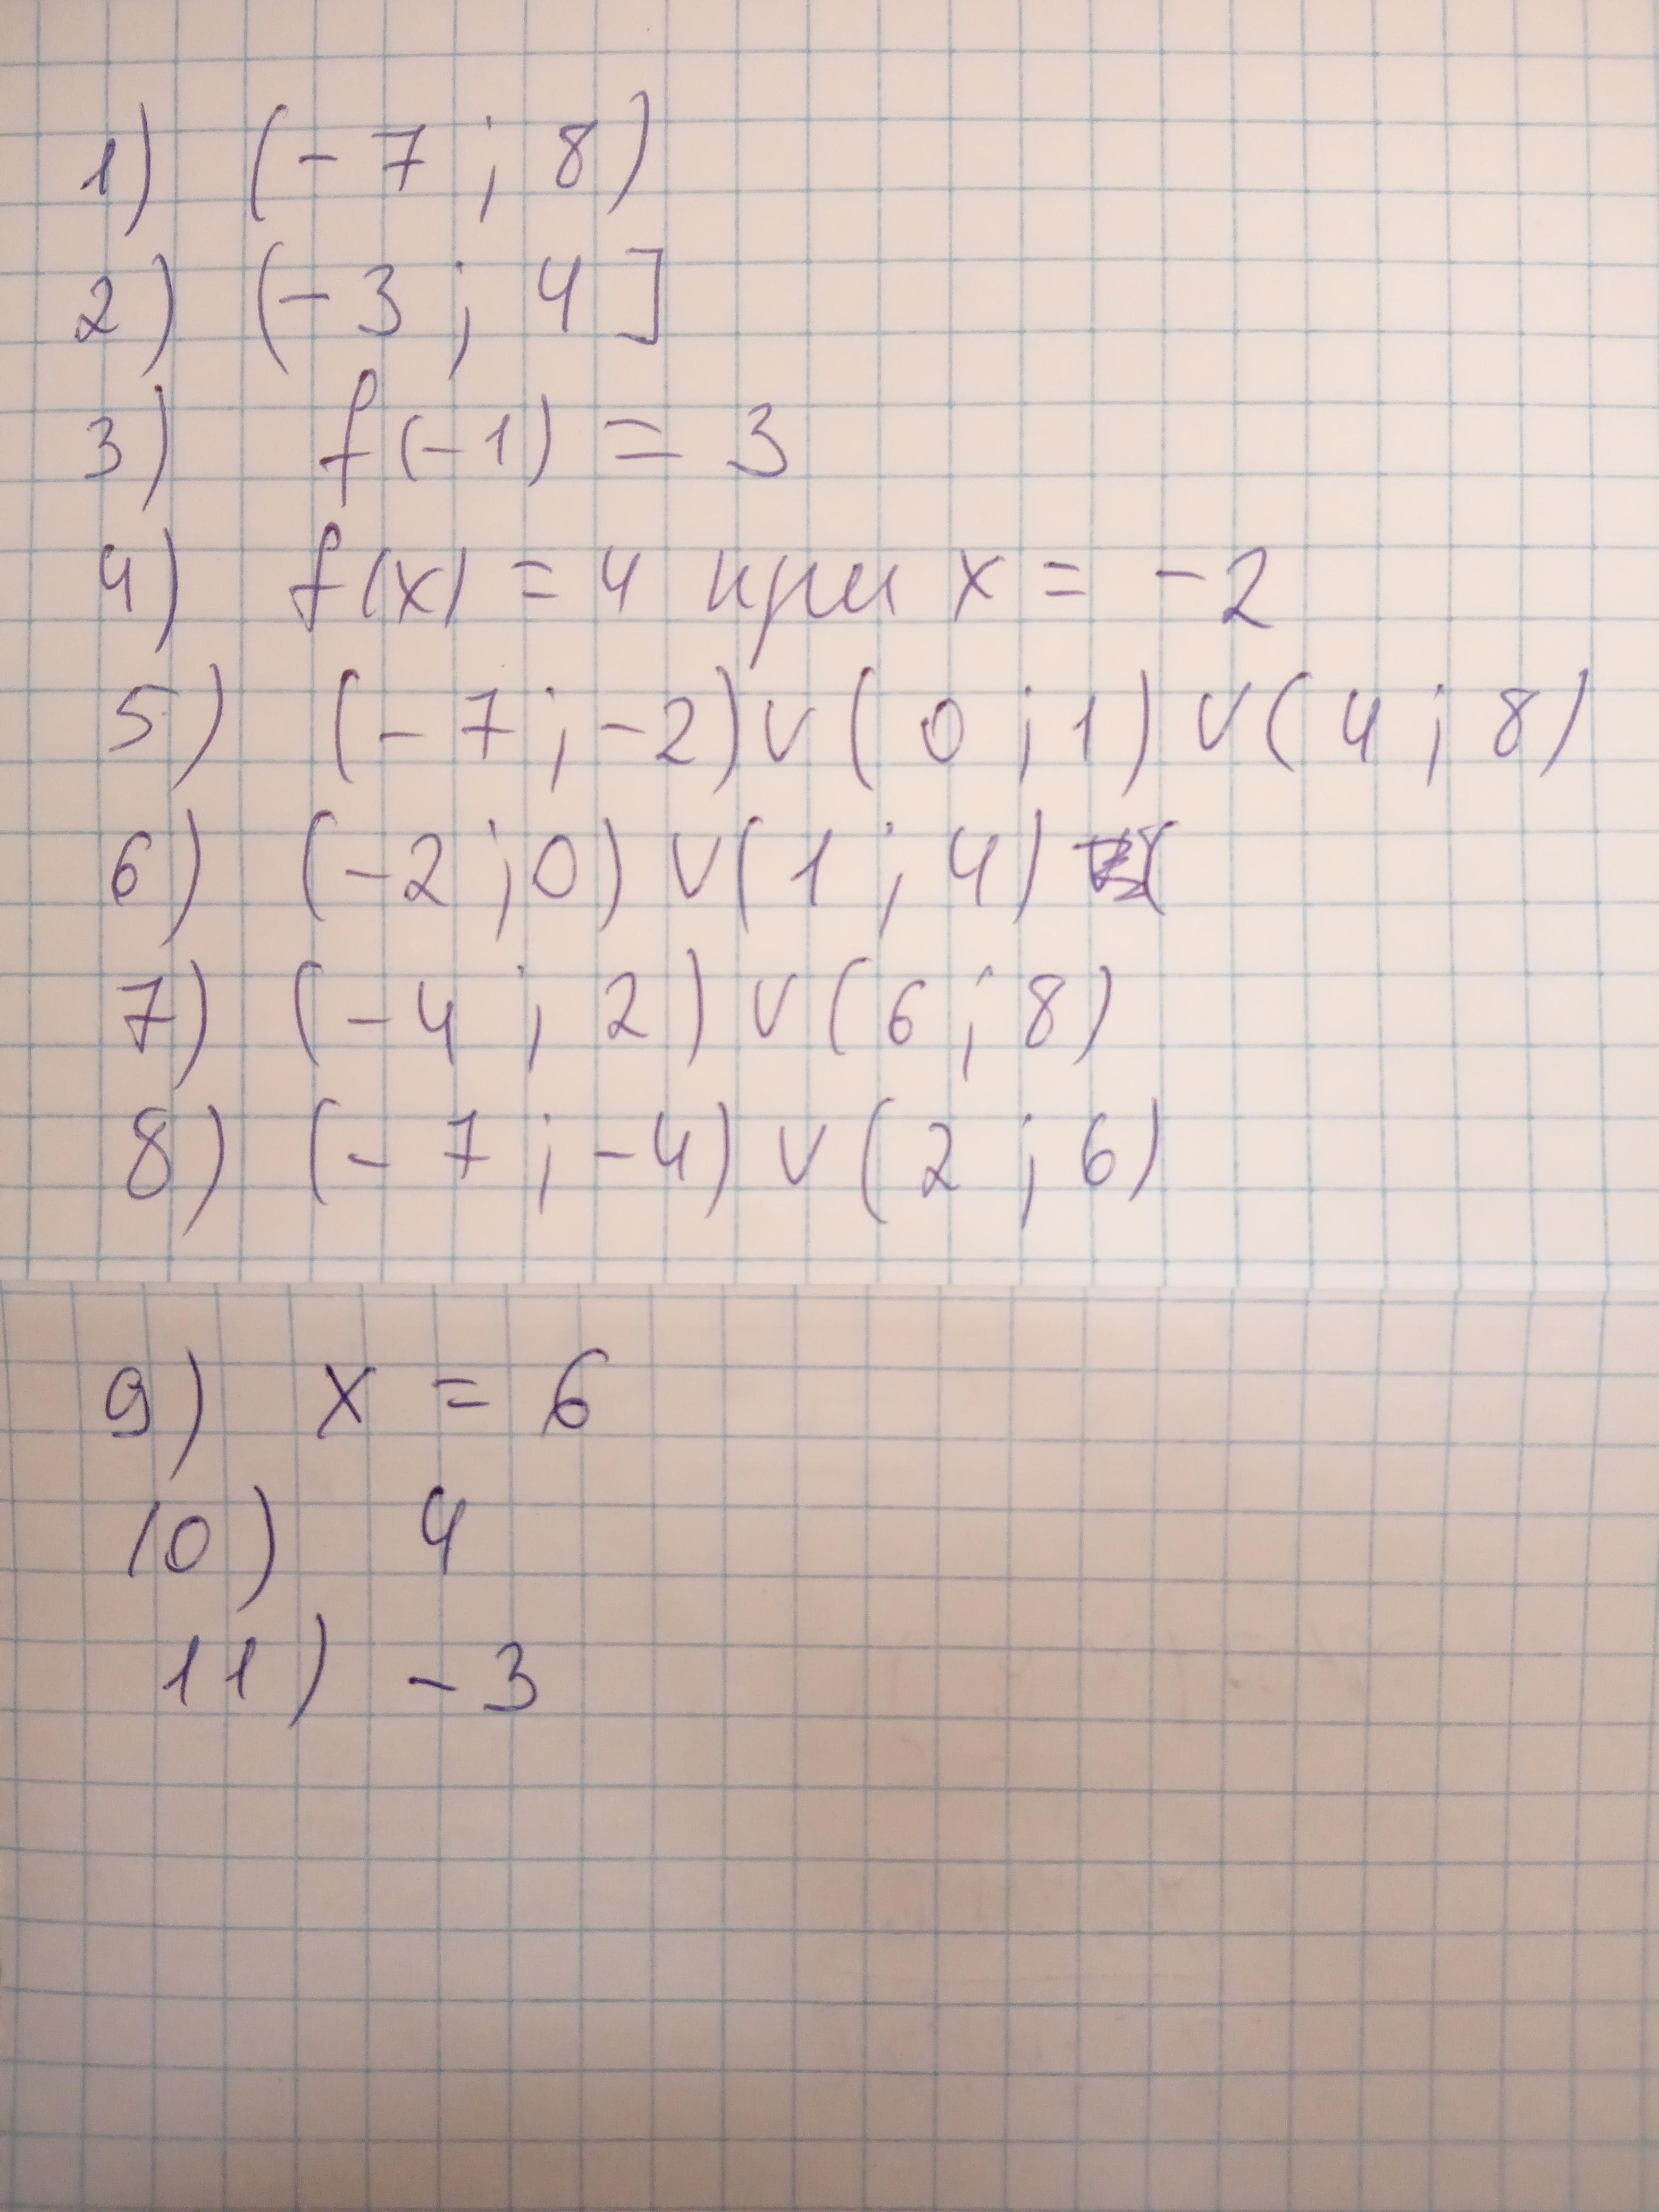 1) (-7 ; 8)
2) (-3 ; 4]
3) f(-1) = 3
4) f(x) = 4 при x = -2
5) (-7 ; -2) ∨ (0 ; 1) ∨ (4 ; 8)
6) (-2 ; 0) ∨ (1 ; 4)
7) (-4 ; 2) ∨ (6 ; 8)
8) (-7 ; -4) ∨ (2 ; 6)
9) x = 6
10) 4
11) -3